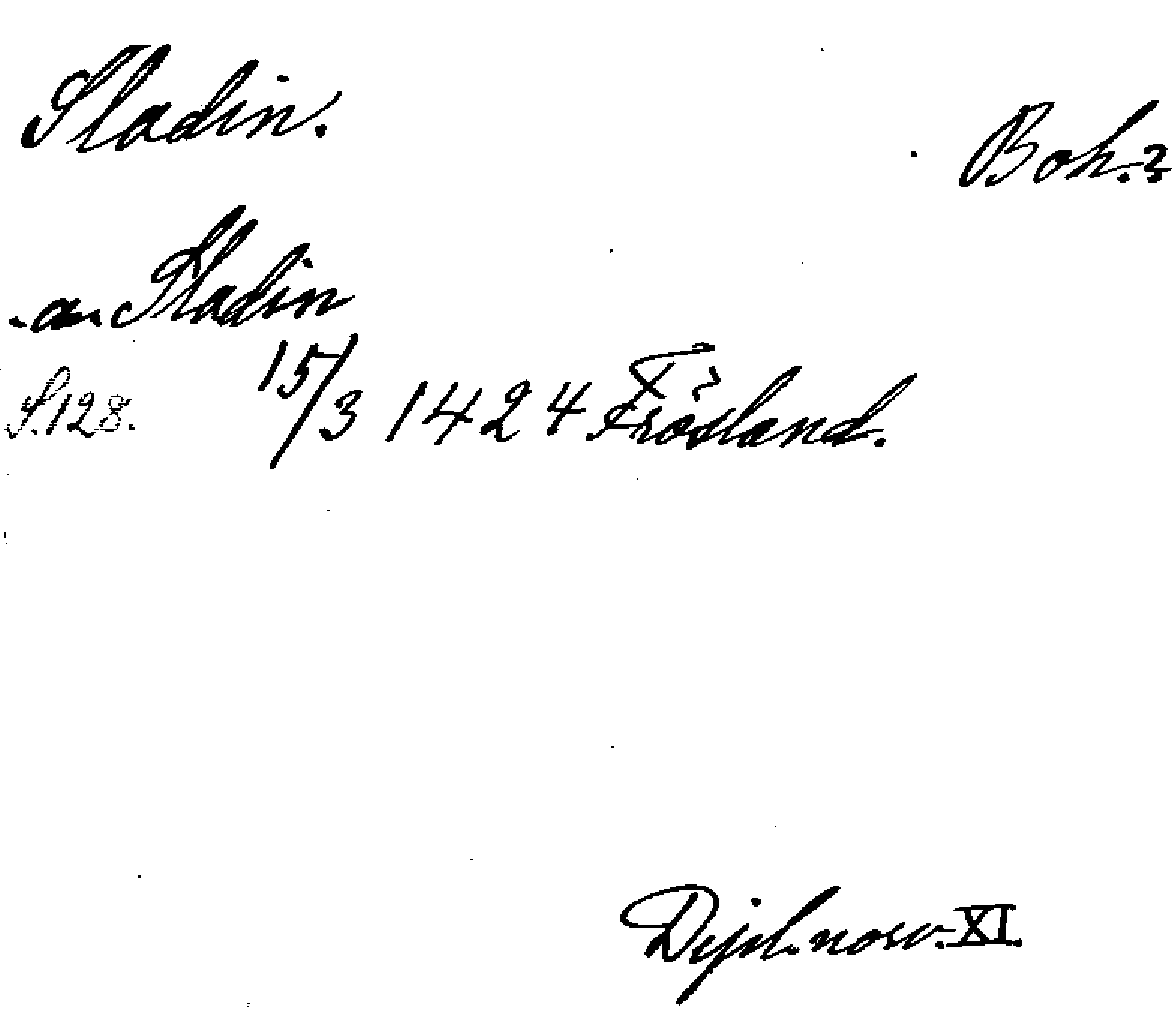 Sladin.
Boh.?
.a. Sladin
S. 128. 15/3 1424 Frösland.
Dipl. norv. XI.